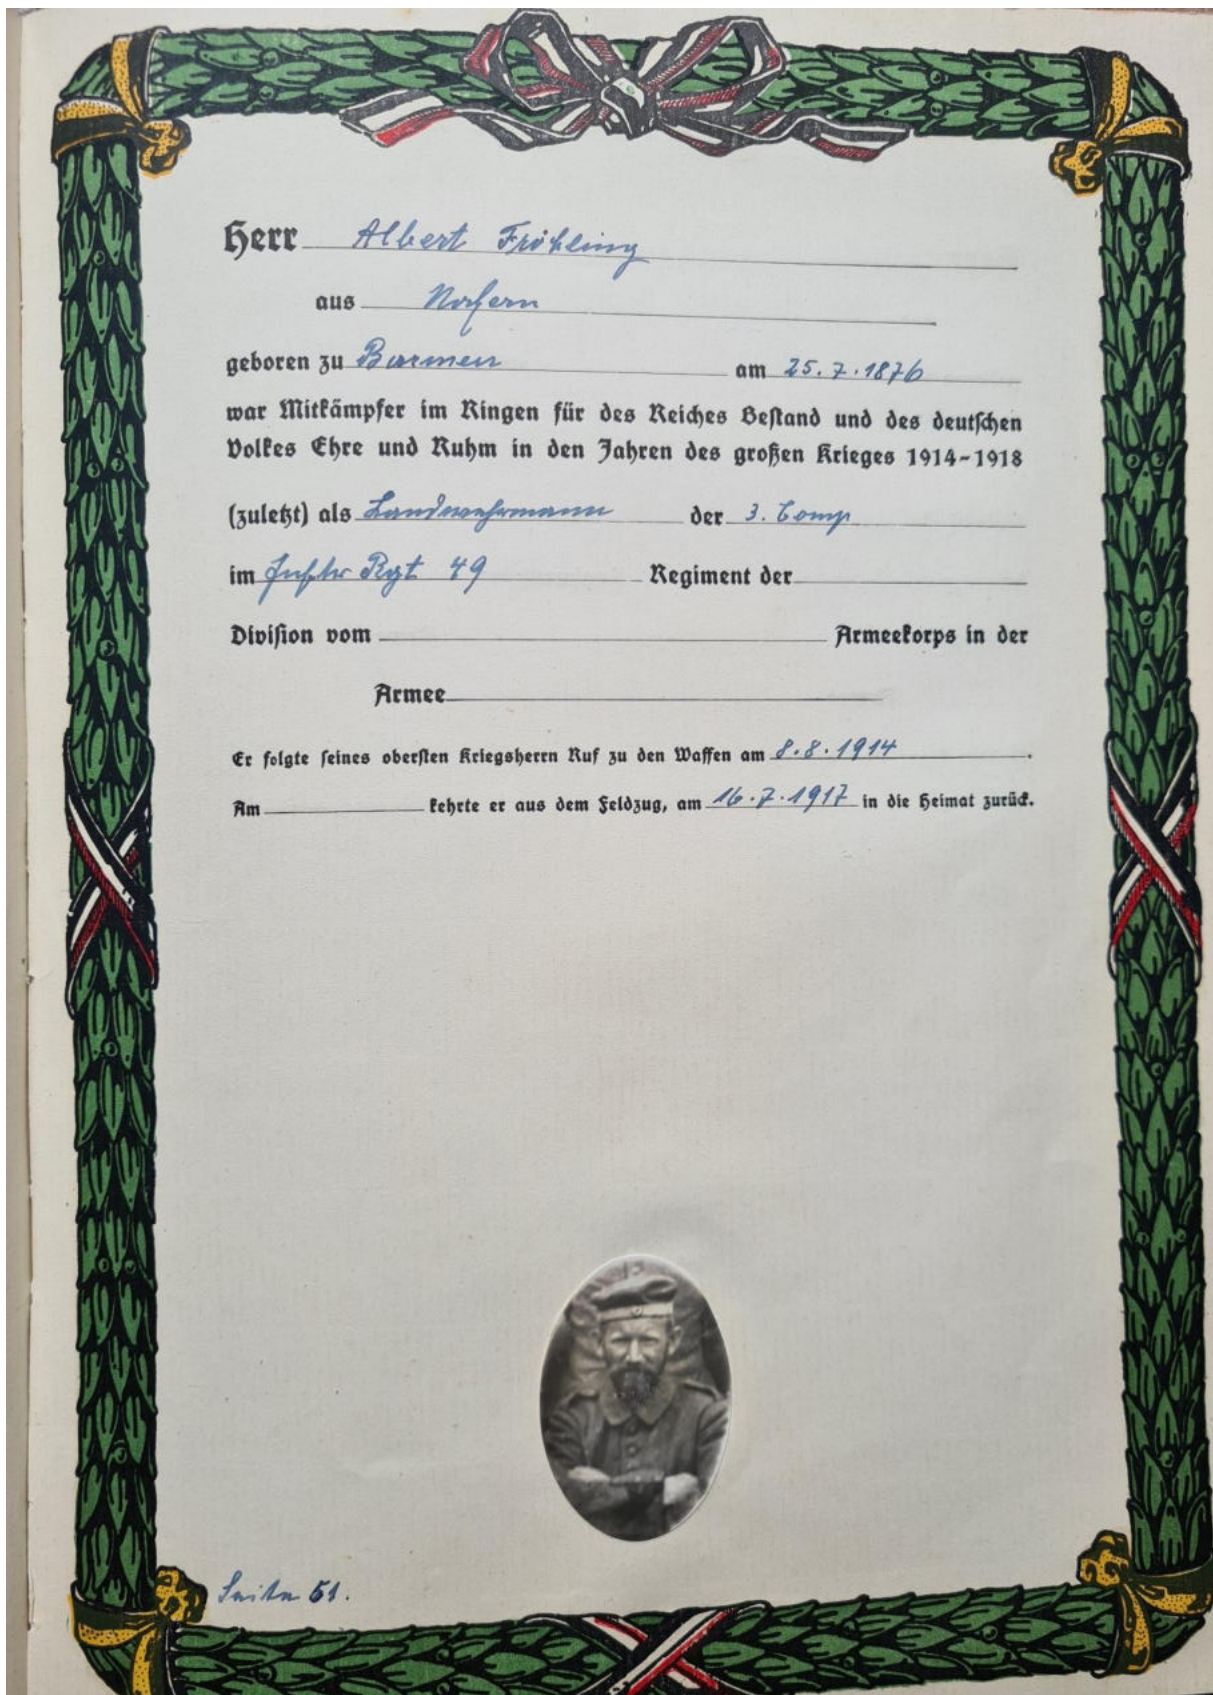 Herr Albert Fröhling
aus
geboren zu Barmen am 25.7.1876
war Mitkämpfer im Ringen für des Reiches Bestand und des deutschen
Volkes Ehre und Ruhm in den Jahren des großen Krieges 1914-1918
(zuletzt) als Landwehrmann der 3. Comp
im Inftr Rgt 49 Regiment der
Division vom Armeekorps in der
Armee
Er folgte seines obersten Kriegsherrn Ruf zu den Waffen am 8.8.1914.
Am kehrte er aus dem Feldzug, am 16.7.1917 in die Heimat zurück.
Seite 51.